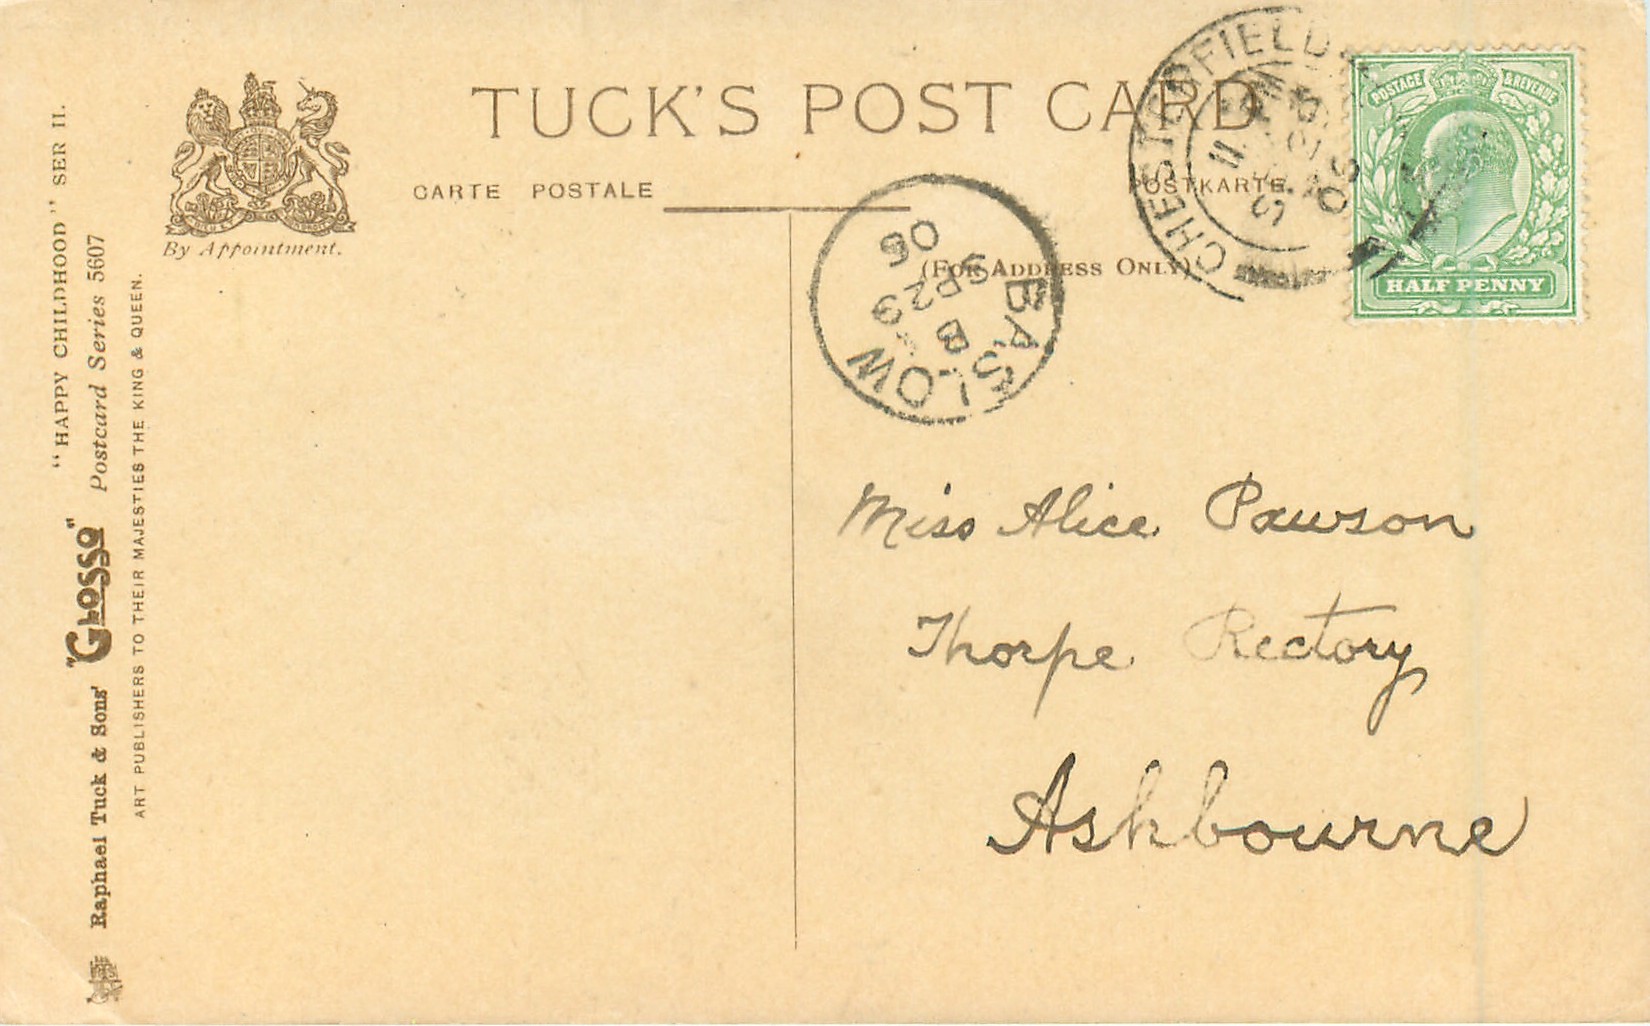 TUCK'S POST CARD
CARTE POSTALE
POSTKARTE
(FOR ADDRESS ONLY)
By Appointment.
"HAPPY CHILDHOOD" SER II.
Raphael Tuck & Sons' "GLOSSO" Postcard Series 5607
ART PUBLISHERS TO THEIR MAJESTIES THE KING & QUEEN.
CHESTERFIELD
BASLOW
B
SP 23
06
POSTAGE & REVENUE
HALF PENNY
Miss Alice Pawson
Thorpe Rectory
Ashbourne